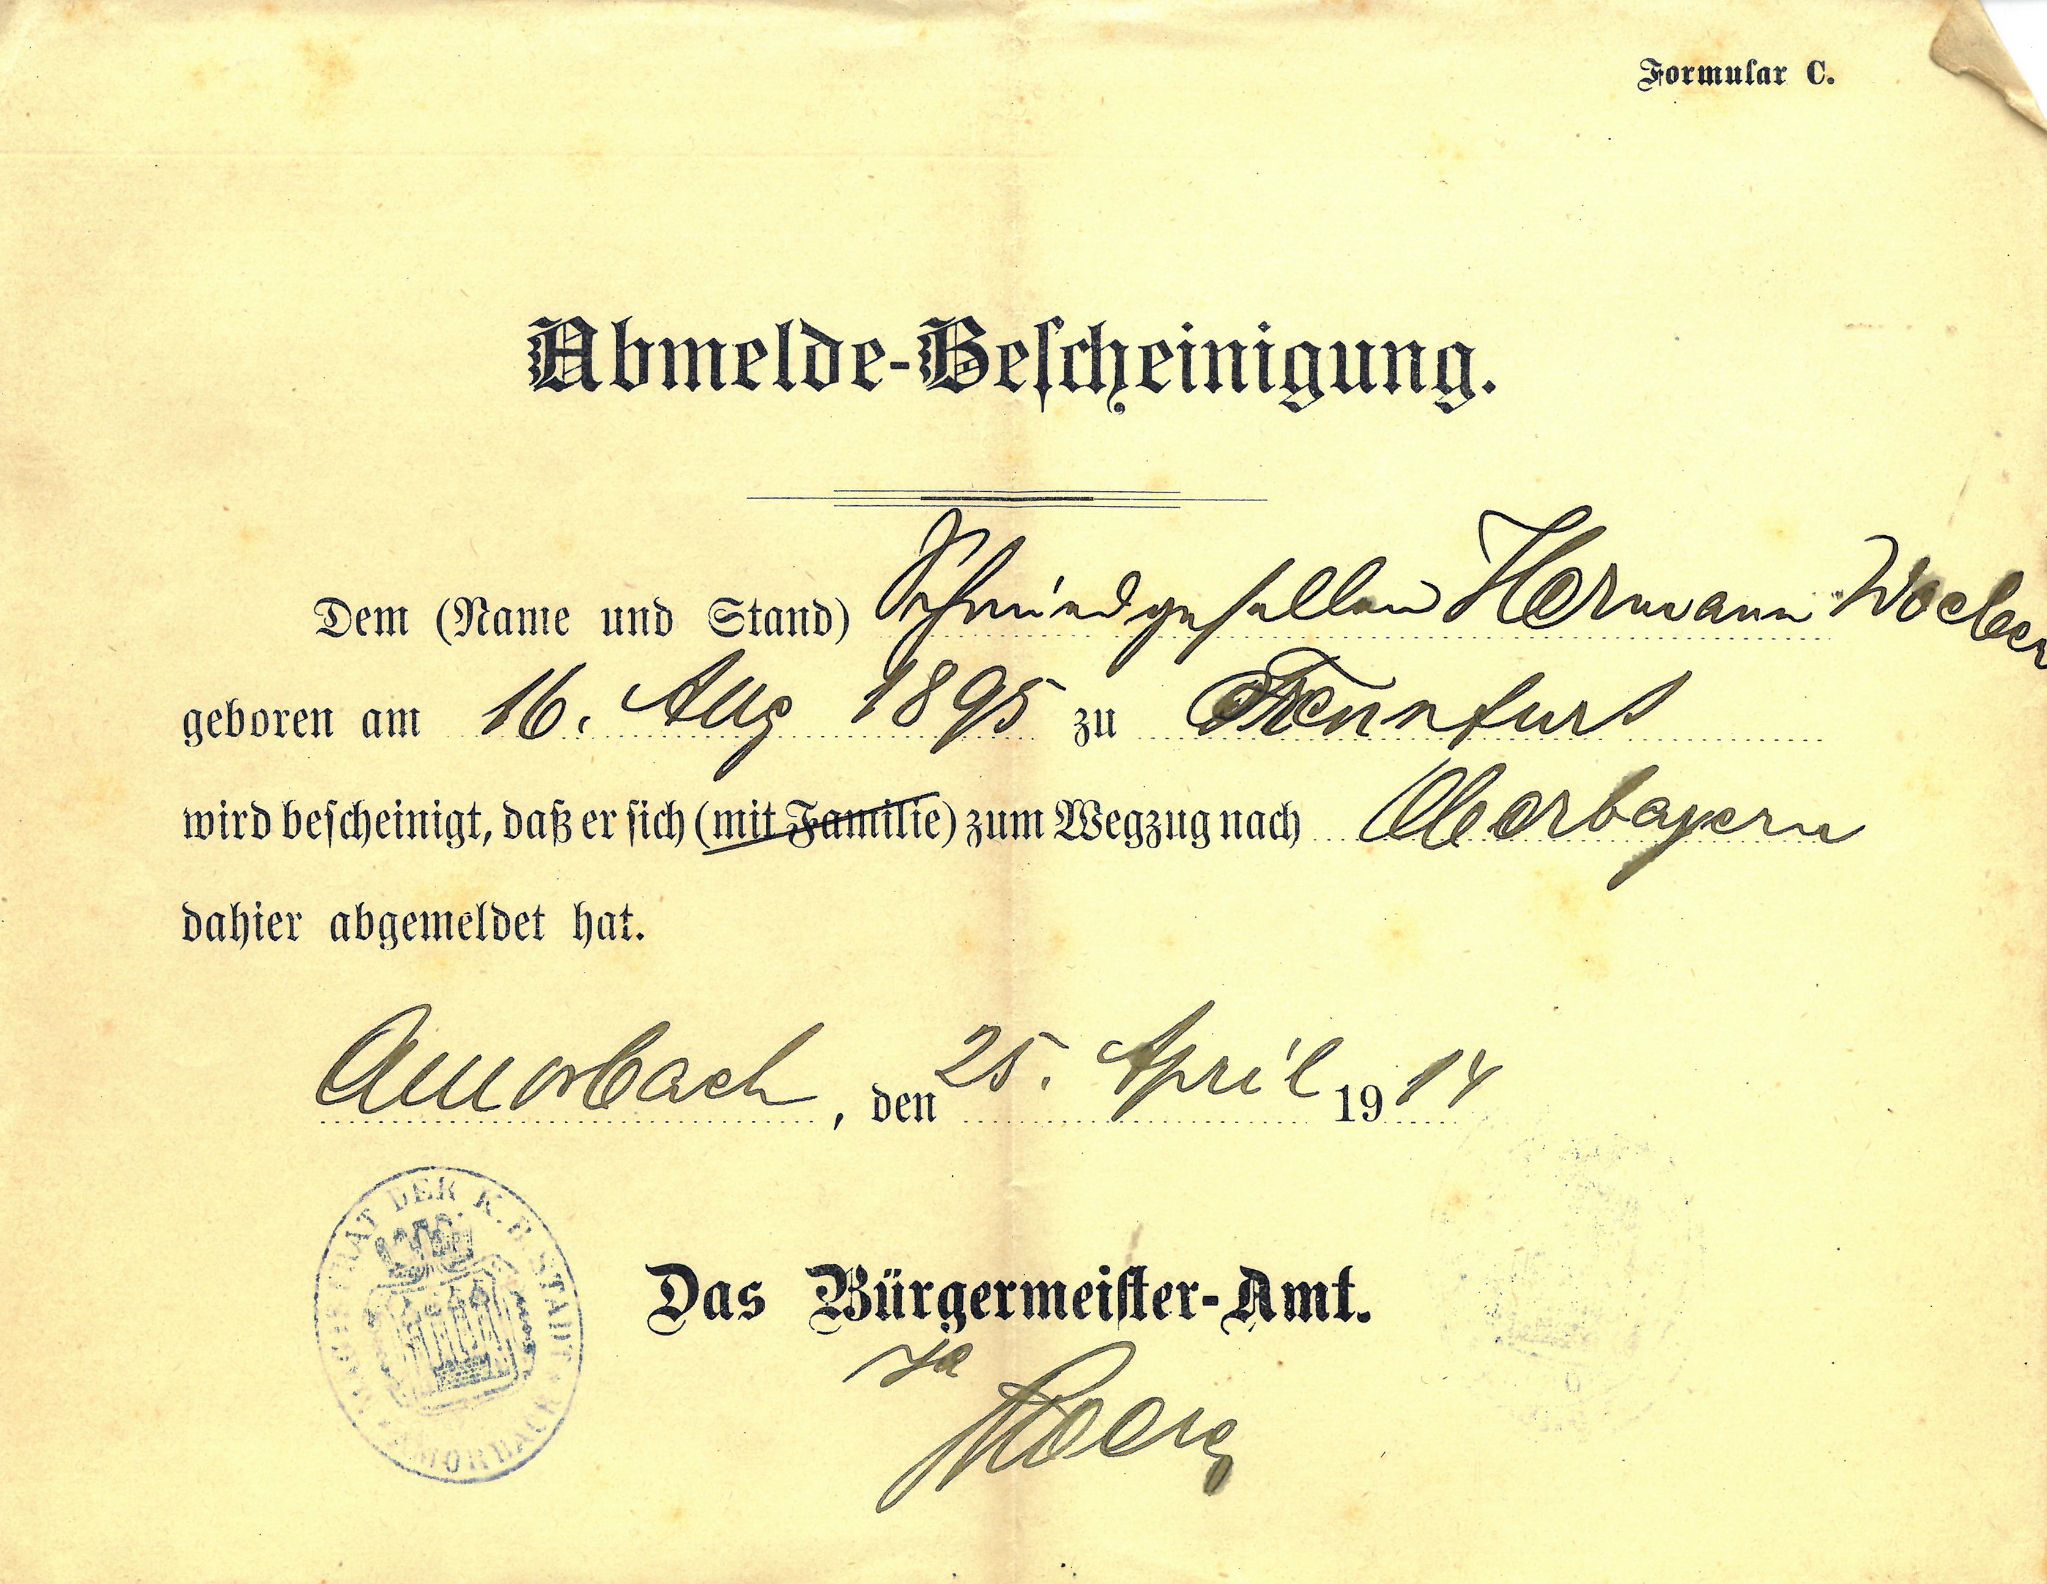 Formular C.
Abmelde-Bescheinigung.
Dem (Name und Stand) Schmiedgesellen Hermann Woeber
geboren am 16. Aug 1895 zu Trennfurt
wird bescheinigt, daß er sich (mit Familie) zum Wegzug nach Oberbayern
dahier abgemeldet hat.
Amorbach, den 25. April 1914
MAGISTRAT DER K. B. STADT AMORBACH
Das Bürgermeister-Amt.